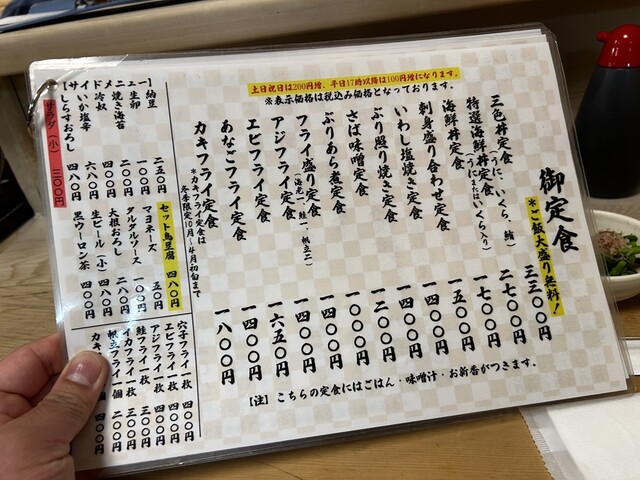 土日祝日は200円増、平日17時以降は100円増になります。
※表示価格は税込み価格となっております。
御定食
*ご飯大盛り無料!
三色丼定食(うに、いくら、鮪) 三三〇〇円
特選海鮮丼定食(うにまたはいくら入り) 二七〇〇円
海鮮丼定食 一七〇〇円
刺身盛り合わせ定食 一五〇〇円
いわし塩焼き定食 一四〇〇円
ぶり照り焼き定食 一四〇〇円
さば味噌定食 一二〇〇円
ぶりあら煮定食
フライ盛り定食(海老一、鮭一、帆立二)
アジフライ定食
エビフライ定食 一六五〇円
あなごフライ定食 一四〇〇円
カキフライ定食 一八〇〇円
*カキフライ定食は冬季限定10月〜4月初旬まで
【注】こちらの定食にはごはん・味噌汁・お新香がつきます。
サイドメニュー
納豆 二五〇円
生卵 一〇〇円
焼き海苔 二〇〇円
冷奴 四八〇円
いか塩辛 六八〇円
しらすおろし 四八〇円
サラダ(小) 三〇〇円
セット鳥豆腐 四八〇円
マヨネーズ 五〇円
タルタルソース 一〇〇円
大根おろし 二八〇円
生ビール(小) 四〇〇円
黒ウーロン茶 四〇〇円
穴子フライ一枚 四〇〇円
エビフライ一枚 四〇〇円
アジフライ一枚 四〇〇円
鮭フライ一枚 三〇〇円
イカフライ一枚 三〇〇円
帆立フライ一個 二〇〇円
カキ 個 四〇〇円